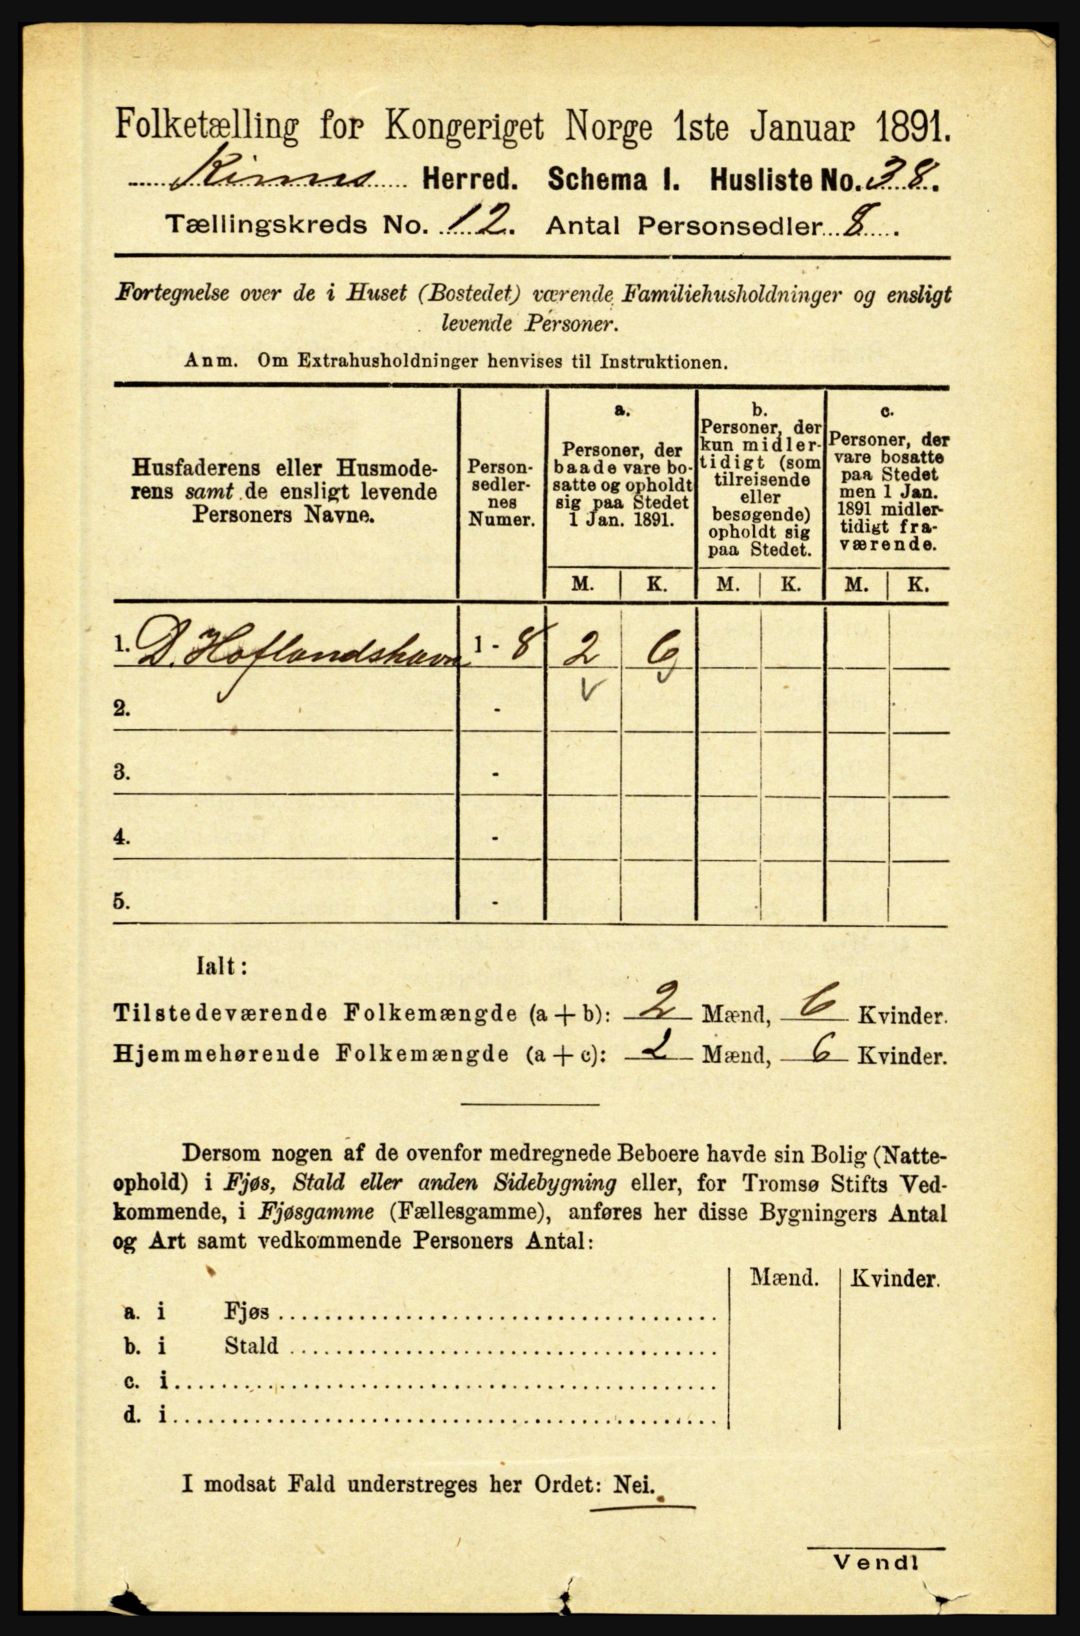 Folketælling for Kongeriget Norge 1ste Januar 1891.
Kinns Herred. Schema I. Husliste No. 38.
Tællingskreds No. 12. Antal Personsedler 8.
Fortegnelse over de i Huset (Bostedet) værende Familiehusholdninger og ensligt
levende Personer.
Anm. Om Extrahusholdninger henvises til Instruktionen.
Husfaderens eller Husmode-
rens samt de ensligt levende
Personers Navne.
Person-
sedler-
nes
Numer.
a.
Personer, der
baade vare bo-
satte og opholdt
sig paa Stedet
1 Jan. 1891.
b.
Personer, der
kun midler-
tidigt (som
tilreisende
eller
besøgende)
opholdt sig
paa Stedet.
c.
Personer, der
vare bosatte
paa Stedet
men 1 Jan.
1891 midler-
tidigt fra-
værende.
M. K. M. K. M. K.
1. D. Hoflandshavn 1 - 8 2 6
2. -
3. -
4. -
5. -
Ialt:
Tilstedeværende Folkemængde (a + b): 2 Mænd, 6 Kvinder.
Hjemmehørende Folkemængde (a + c): 2 Mænd, 6 Kvinder.
Dersom nogen af de ovenfor medregnede Beboere havde sin Bolig (Natte-
ophold) i Fjøs, Stald eller anden Sidebygning eller, for Tromsø Stifts Ved-
kommende, i Fjøsgamme (Fællesgamme), anføres her disse Bygningers Antal
og Art samt vedkommende Personers Antal:
Mænd. Kvinder.
a. i Fjøs
b. i Stald
c. i
d. i
I modsat Fald understreges her Ordet: Nei.
Vend!